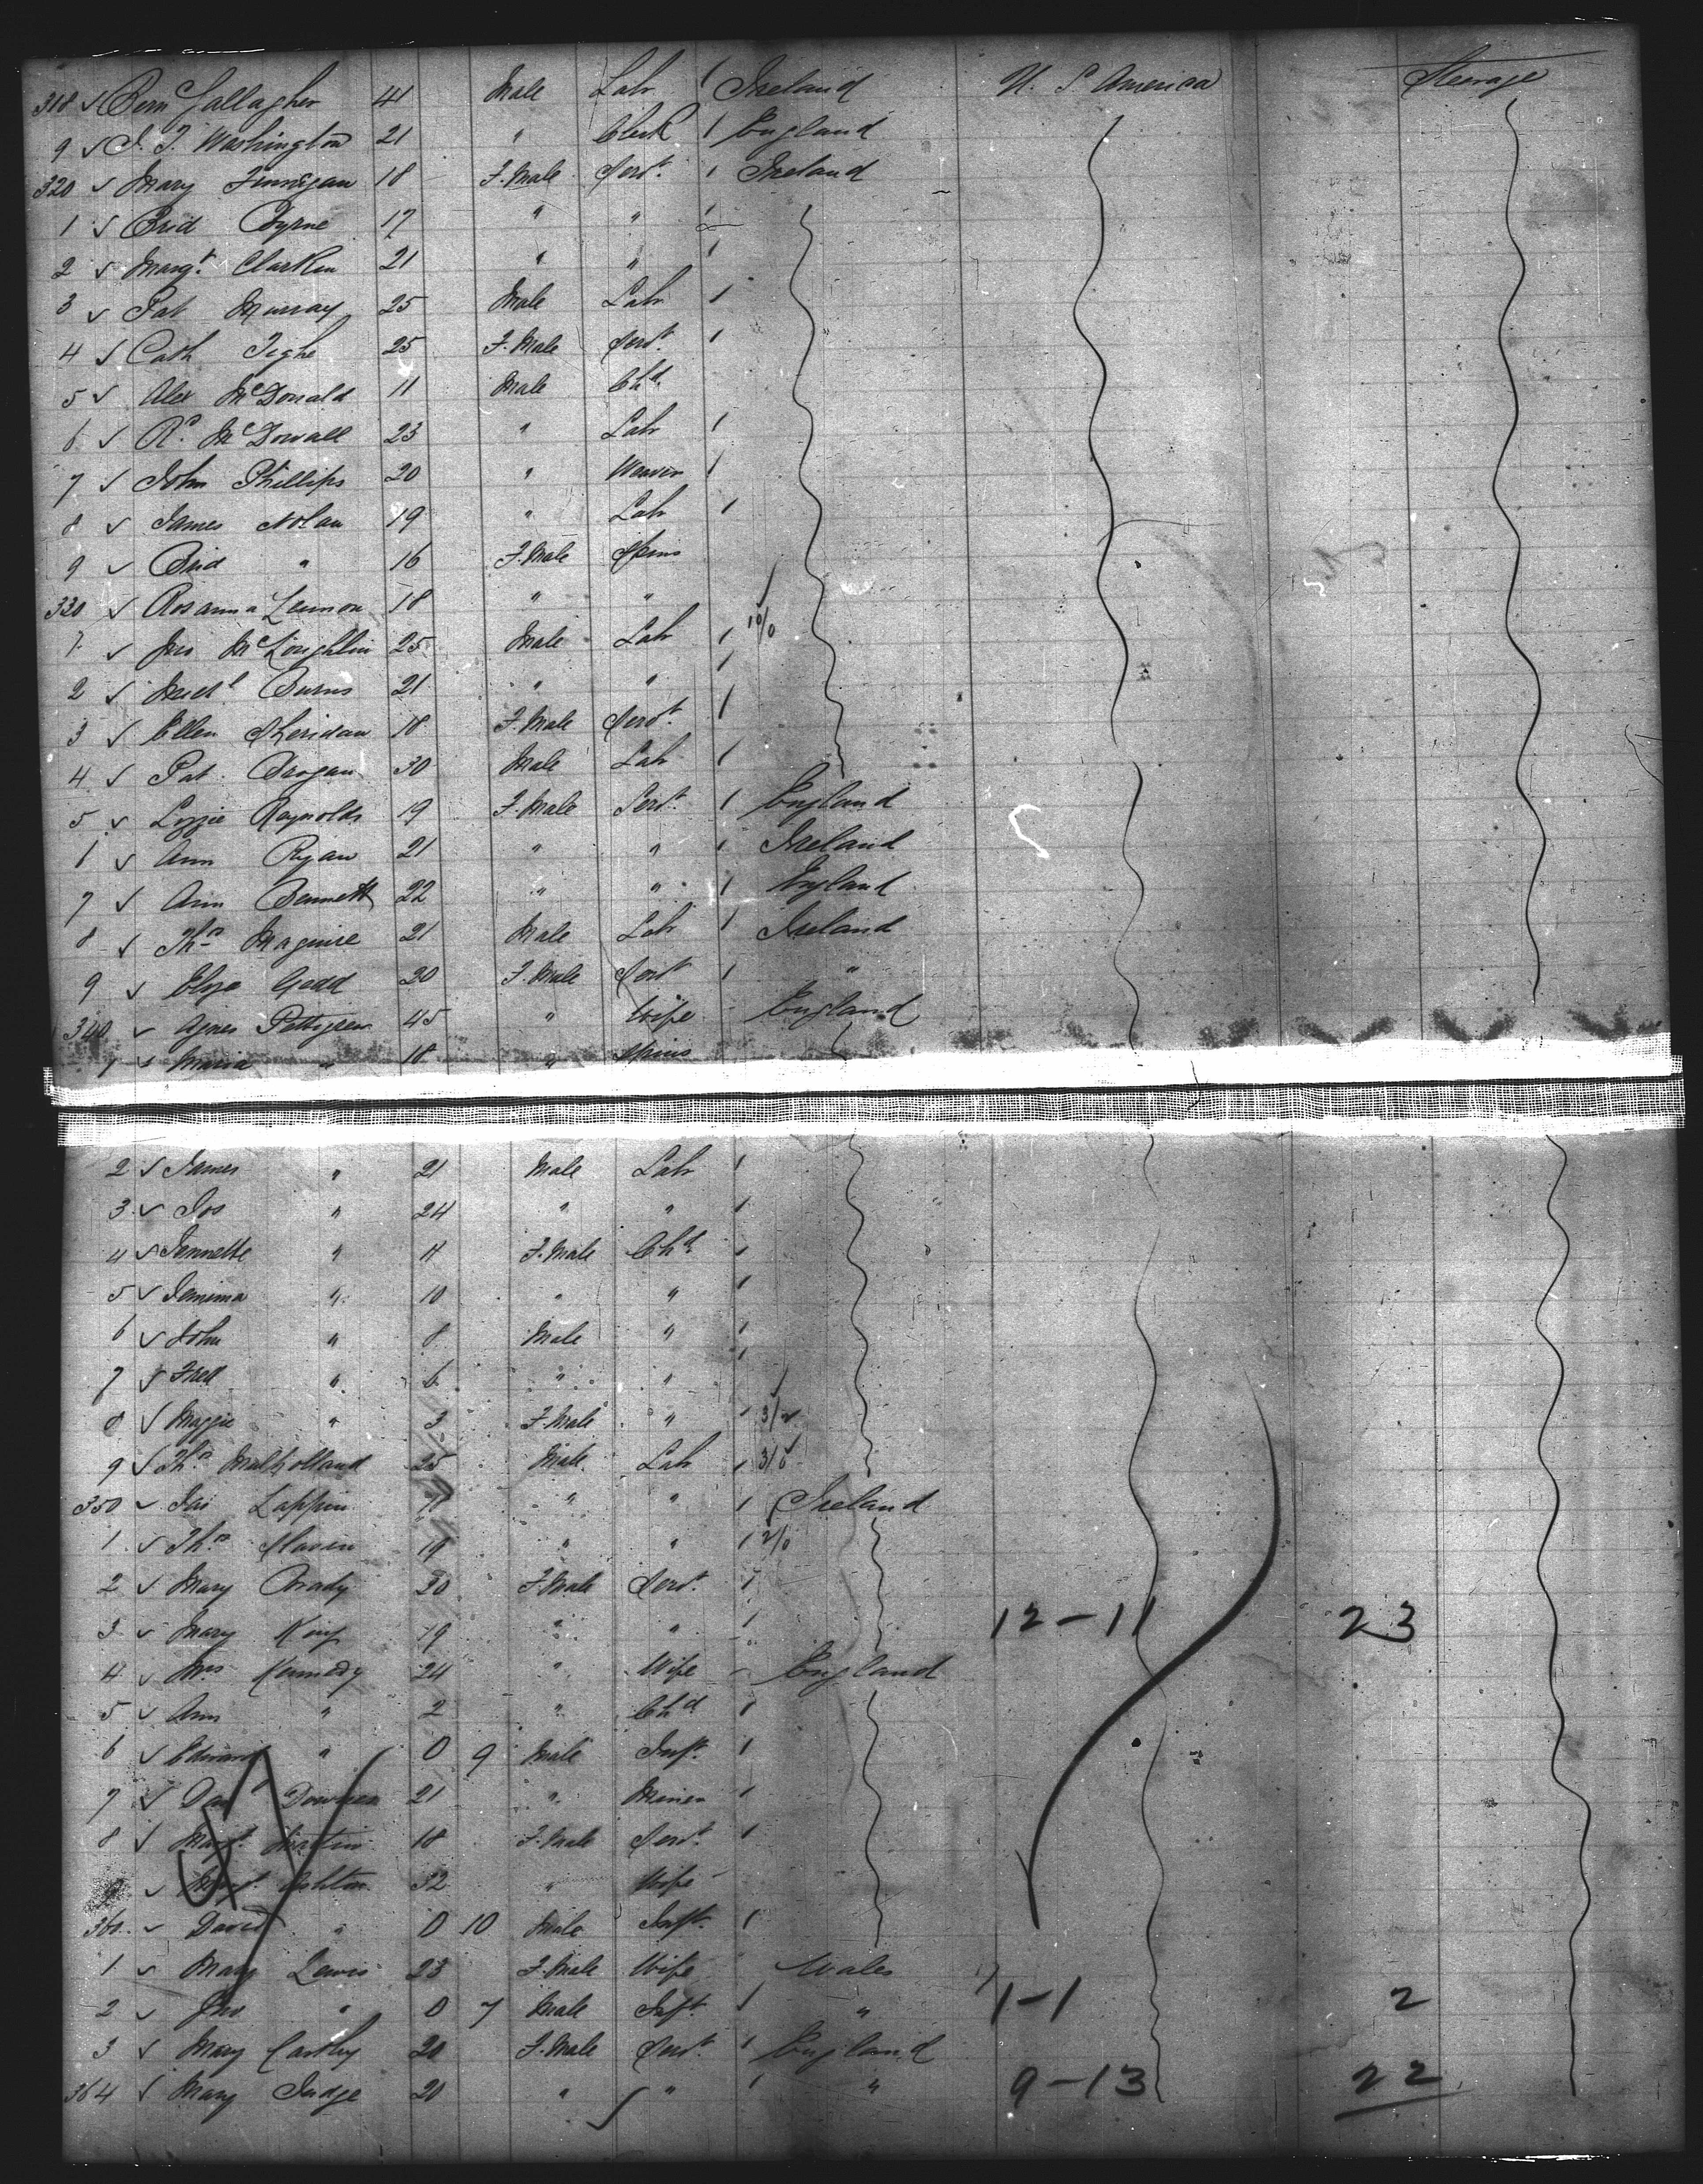 318 ✓ Bernd Gallagher 41 Male Labr 1 Ireland U. S America Steerage
9 ✓ J. T. Washington 21 " Clerk 1 England
320 ✓ Mary Finnigan 18 F. Male Servt. 1 Ireland
1 ✓ Brid Byrne 17 " " 1
2 ✓ Margt. Clarken 21 " " 1
3 ✓ Pat Murray 25 Male Labr 1
4 ✓ Cath Tighe 25 F. Male Servt. 1
5 ✓ Alex McDonald 11 Male Chd.
6 ✓ Rd. McDowall 23 " Labr 1
7 ✓ John Phillips 20 " Weaver 1
8 ✓ James Nolan 19 " Labr 1
9 ✓ Brid " 16 F. Male Spins
330 ✓ Rosanna Lennon 18 " " ✓
1 ✓ Jno McLoughlin 25 Male Labr 1 10/0
2 ✓ Michl Burns 21 " " 1
3 ✓ Ellen Sheridan 18 F. Male Servt. 1
4 ✓ Pat. Brogan 30 Male Labr 1
5 ✓ Lizzie Reynolds 19 F. Male Servt. 1 England
6 ✓ Ann Ryan 21 " " 1 Ireland
7 ✓ Ann Bennett 22 " " 1 England
8 ✓ Thos Maguire 21 Male Labr 1 Ireland
9 ✓ Eliza Gadd 20 F. Male Servt 1 "
340 ✓ Agnes Pettigrew 45 " Wife England
1 ✓ Maria " 18 " Spins
2 ✓ James " 21 Male Labr 1
3 ✓ Jos " 24 " " 1
4 ✓ Jannette " 11 F. Male Chd. 1
5 ✓ Jemima " 10 " " 1
6 ✓ John " 8 Male " 1
7 ✓ Fred " 6 " " 1
8 ✓ Maggie " 3 F. Male " 1
9 ✓ Thos Mulholland 25 Male Labr 1
350 ✓ Jas Lappin " " 1 Ireland
1 ✓ Thos Slaven 19 " " 1 2/0
2 ✓ Mary Brady 20 F. Male Servt. 1
3 ✓ Mary King 19 " " 1 12-11 23
4 ✓ Mrs Kennedy 24 " Wife - England
5 ✓ Ann " 2 " Chd 1
6 ✓ Edward " 0 9 Male Inft. 1
7 ✓ 21 " Miner 1
8 ✓ Margt. Martin 18 F. Male Servt. 1
9 ✓ Margt. Ashton 32 " Wife -
360 ✓ David " 0 10 Male Inft. 1
1 ✓ Mary Lewis 23 F. Male Wife Wales
2 ✓ Jno " 0 7 Male Inft. 1 " 1-1 2
3 ✓ Mary 20 F. Male Servt. 1 England
364 ✓ Mary Judge 20 " " 1 " 9-13 22